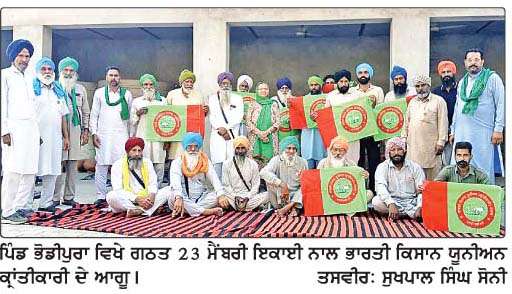 ਪਿੰਡ ਭੋਡੀਪੁਰਾ ਵਿਖੇ ਗਠਤ 23 ਮੈਂਬਰੀ ਇਕਾਈ ਨਾਲ ਭਾਰਤੀ ਕਿਸਾਨ ਯੂਨੀਅਨ
ਕ੍ਰਾਂਤੀਕਾਰੀ ਦੇ ਆਗੂ। ਤਸਵੀਰ: ਸੁਖਪਾਲ ਸਿੰਘ ਸੋਨੀ